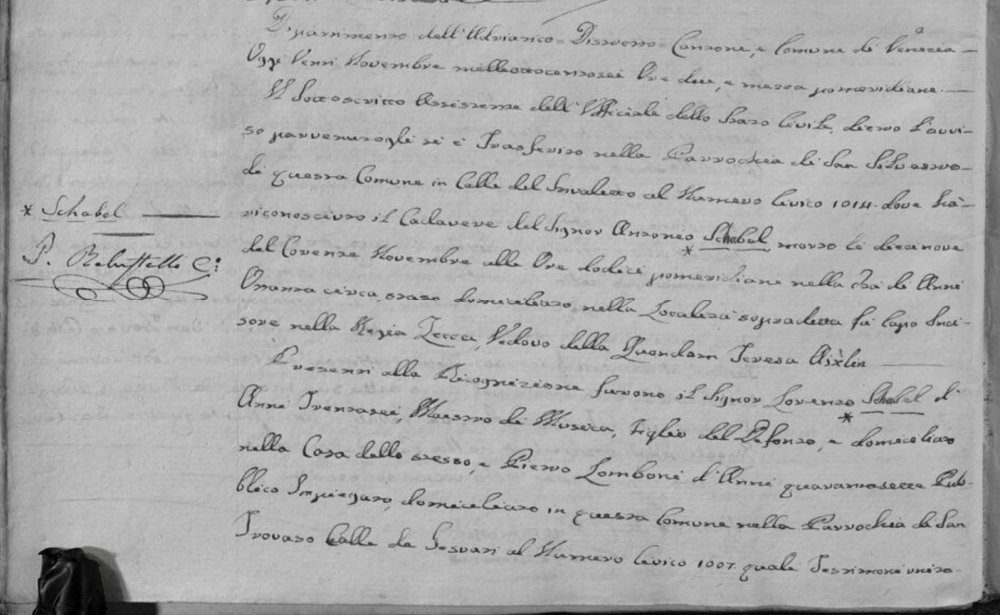 Dipartimento dell'Adriatico = Distretto = Cantone, e Comune di Venezia
Oggi Venti Novembre milleottocentosei Ore due, e mezza pomeridiane.
Il Sottoscritto Assistente dell'Ufficiale dello Stato Civile, dietro l'avvi-
so pervenutogli si è Trasferito nella Parrochia di San Silvestro
di questa Comune in Calle del al Numero Civico 1014. dove hà
riconosciuto il Cadavere del Signor Antonio Schabel morto li diecinove
* Schabel
*
del Corrente Novembre alle Ore dodici pomeridiane nella Età di Anni
P. Rebustello C:
Ottanta circa, stato domiciliato nella Località sopradetta fù Capo Inci-
sore nella Regia Zecca, Vedovo della Quondam Teresa Aixlin
Presenti alla Ricognizione furono il Signor Lorenzo Schabel d'
*
Anni Trentasei, Maestro di Musica, Figlio del Defonto, e domiciliato
nella Casa dello stesso, e Pietro Lomboni d'Anni quarantasette Pub-
blico Impiegato, domiciliato in questa Comune nella Parrochia di San
Trovaso Calle de Gesuati al Numero Civico 1007. quali Testimoni unita-